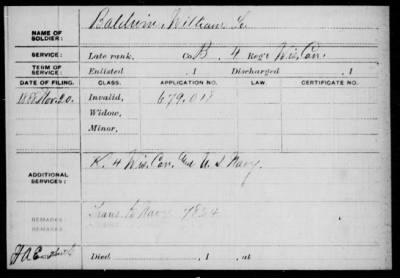 NAME OF SOLDIER: Baldwin, William L.
SERVICE: Late rank, Co. B. 4 Reg't Wis. Cav.
TERM OF SERVICE: Enlisted , 1 Discharged , 1
DATE OF FILING. CLASS. APPLICATION NO. CERTIFICATE NO.
Nov. 20. Invalid, 679.018
Widow,
Minor,
ADDITIONAL SERVICES: K. 4 Wis. Cav. U S Navy.
REMARKS: Trans. to Navy
REMARKS:
Died , 1 , at